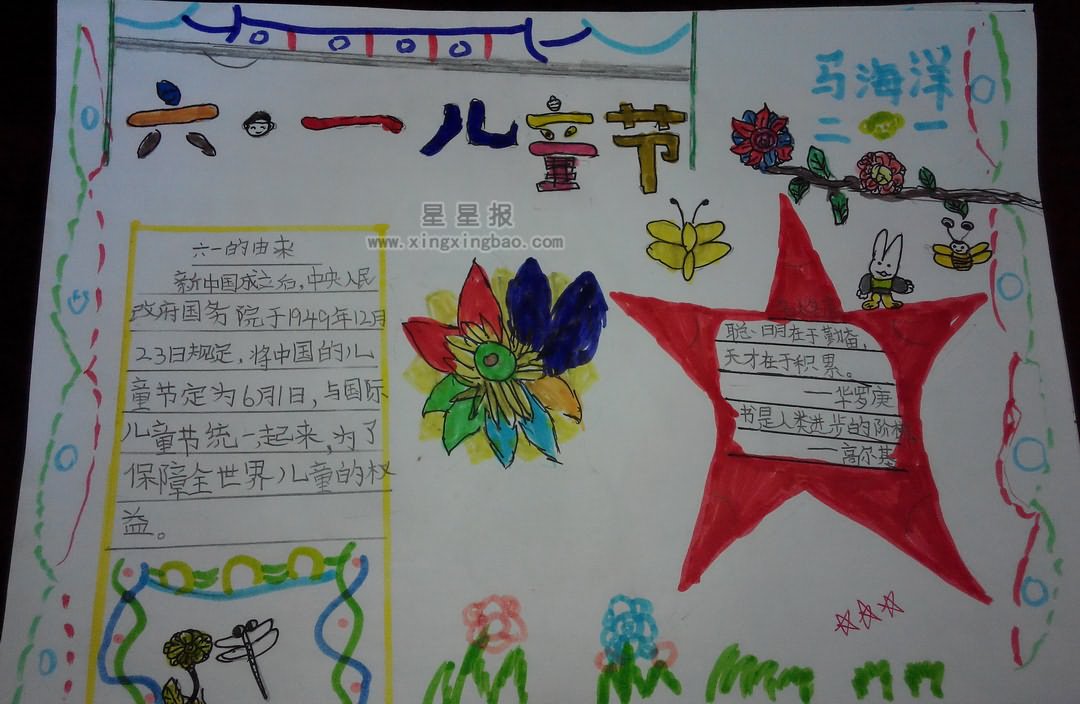 六·一儿童节
马海洋
二 一
星星报
www.xingxingbao.com
六一的由来
新中国成立后,中央人民
政府国务院于1949年12月
23日规定,将中国的儿
童节定为6月1日,与国际
儿童节统一起来,为了
保障全世界儿童的权
益。
聪明在于勤奋,
天才在于积累。
——华罗庚
书是人类进步的阶梯
——高尔基